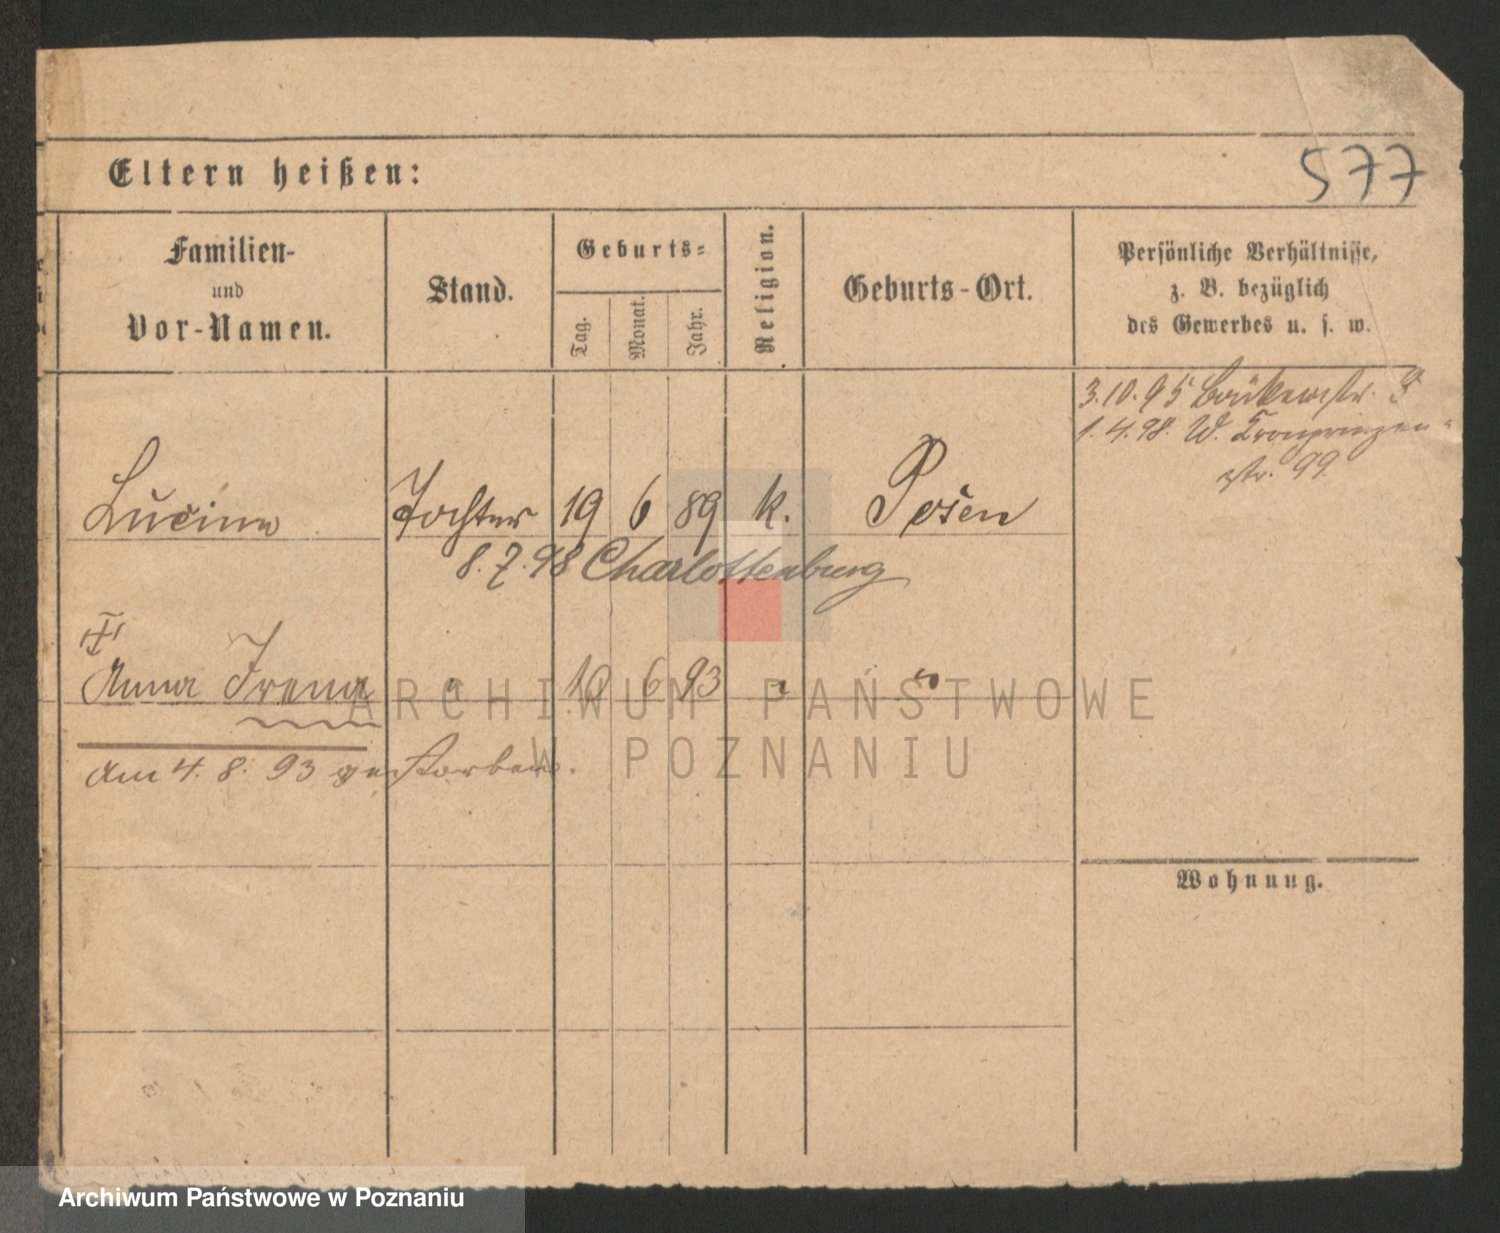 577
Eltern heißen:
Familien-
und
Vor-Namen.
Stand.
Geburts-
Tag.
Monat.
Jahr.
Religion.
Geburts-Ort.
Persönliche Verhältnisse,
z. B. bezüglich
des Gewerbes u. s. w.
3.10.95
1.4.98. W. Kronprinzen-
str. 99.
Lucina Tochter 19 6 89 k. Posen
8.7.98 Charlottenburg
Anna Irena " 10 6 93 " "
am 4. 8. 93 gestorben.
Wohnung.
ARCHIWUM PAŃSTWOWE
W POZNANIU
Archiwum Państwowe w Poznaniu